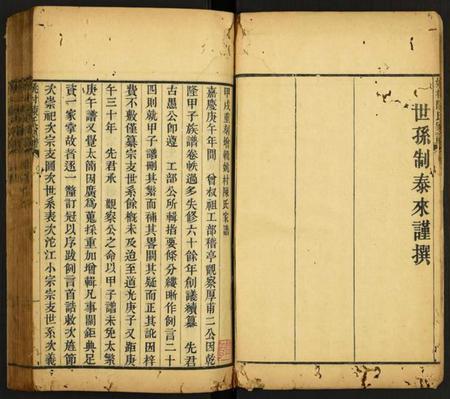 甲戌重刻增輯姚村陳氏家譜
嘉慶庚午年間　曾叔祖工部稽亭觀察厚甫二公因乾
隆甲子族譜卷帙過多失修六十餘年創議續纂　先君
古愚公卽遵　工部公所輯指要條分縷晰作例言二十
四則就甲子譜刪其繁而補其畧闕其疑而正其訛因梓
費不敷僅纂宗支世系餘槪未及迨至道光庚子又距庚
午三十年　先君承　觀察公之命以甲子譜未免太繁
庚午譜又覺太簡因廣爲蒐採重加增輯凡事關鉅典足
資一家掌故者逐一釐訂冠以序跋例言首誥敕次旌節
次崇祀次宗支圖次世系表次沱江小宗宗支世系次義
世孫制泰來謹撰